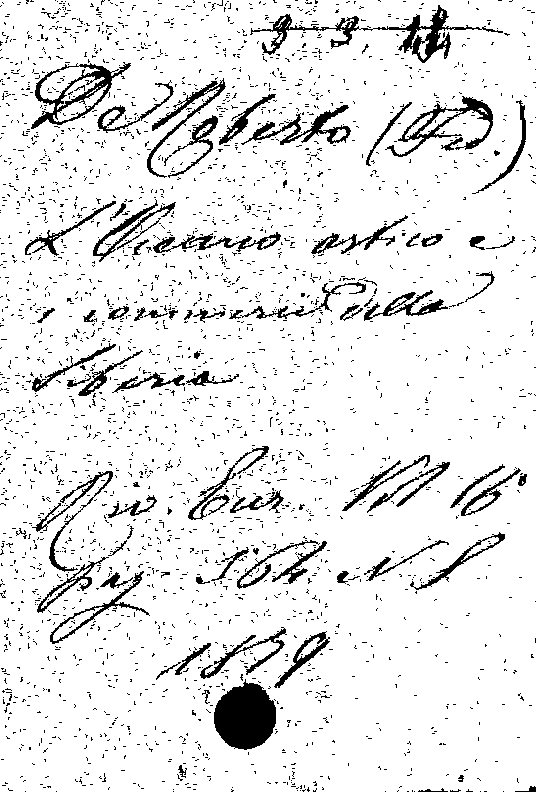 3. 3.
De Roberto (Fed.)
L'Oceano artico e
i commerci della
Siberia
Riv. Eur. Vol 16°
pag N S
1879